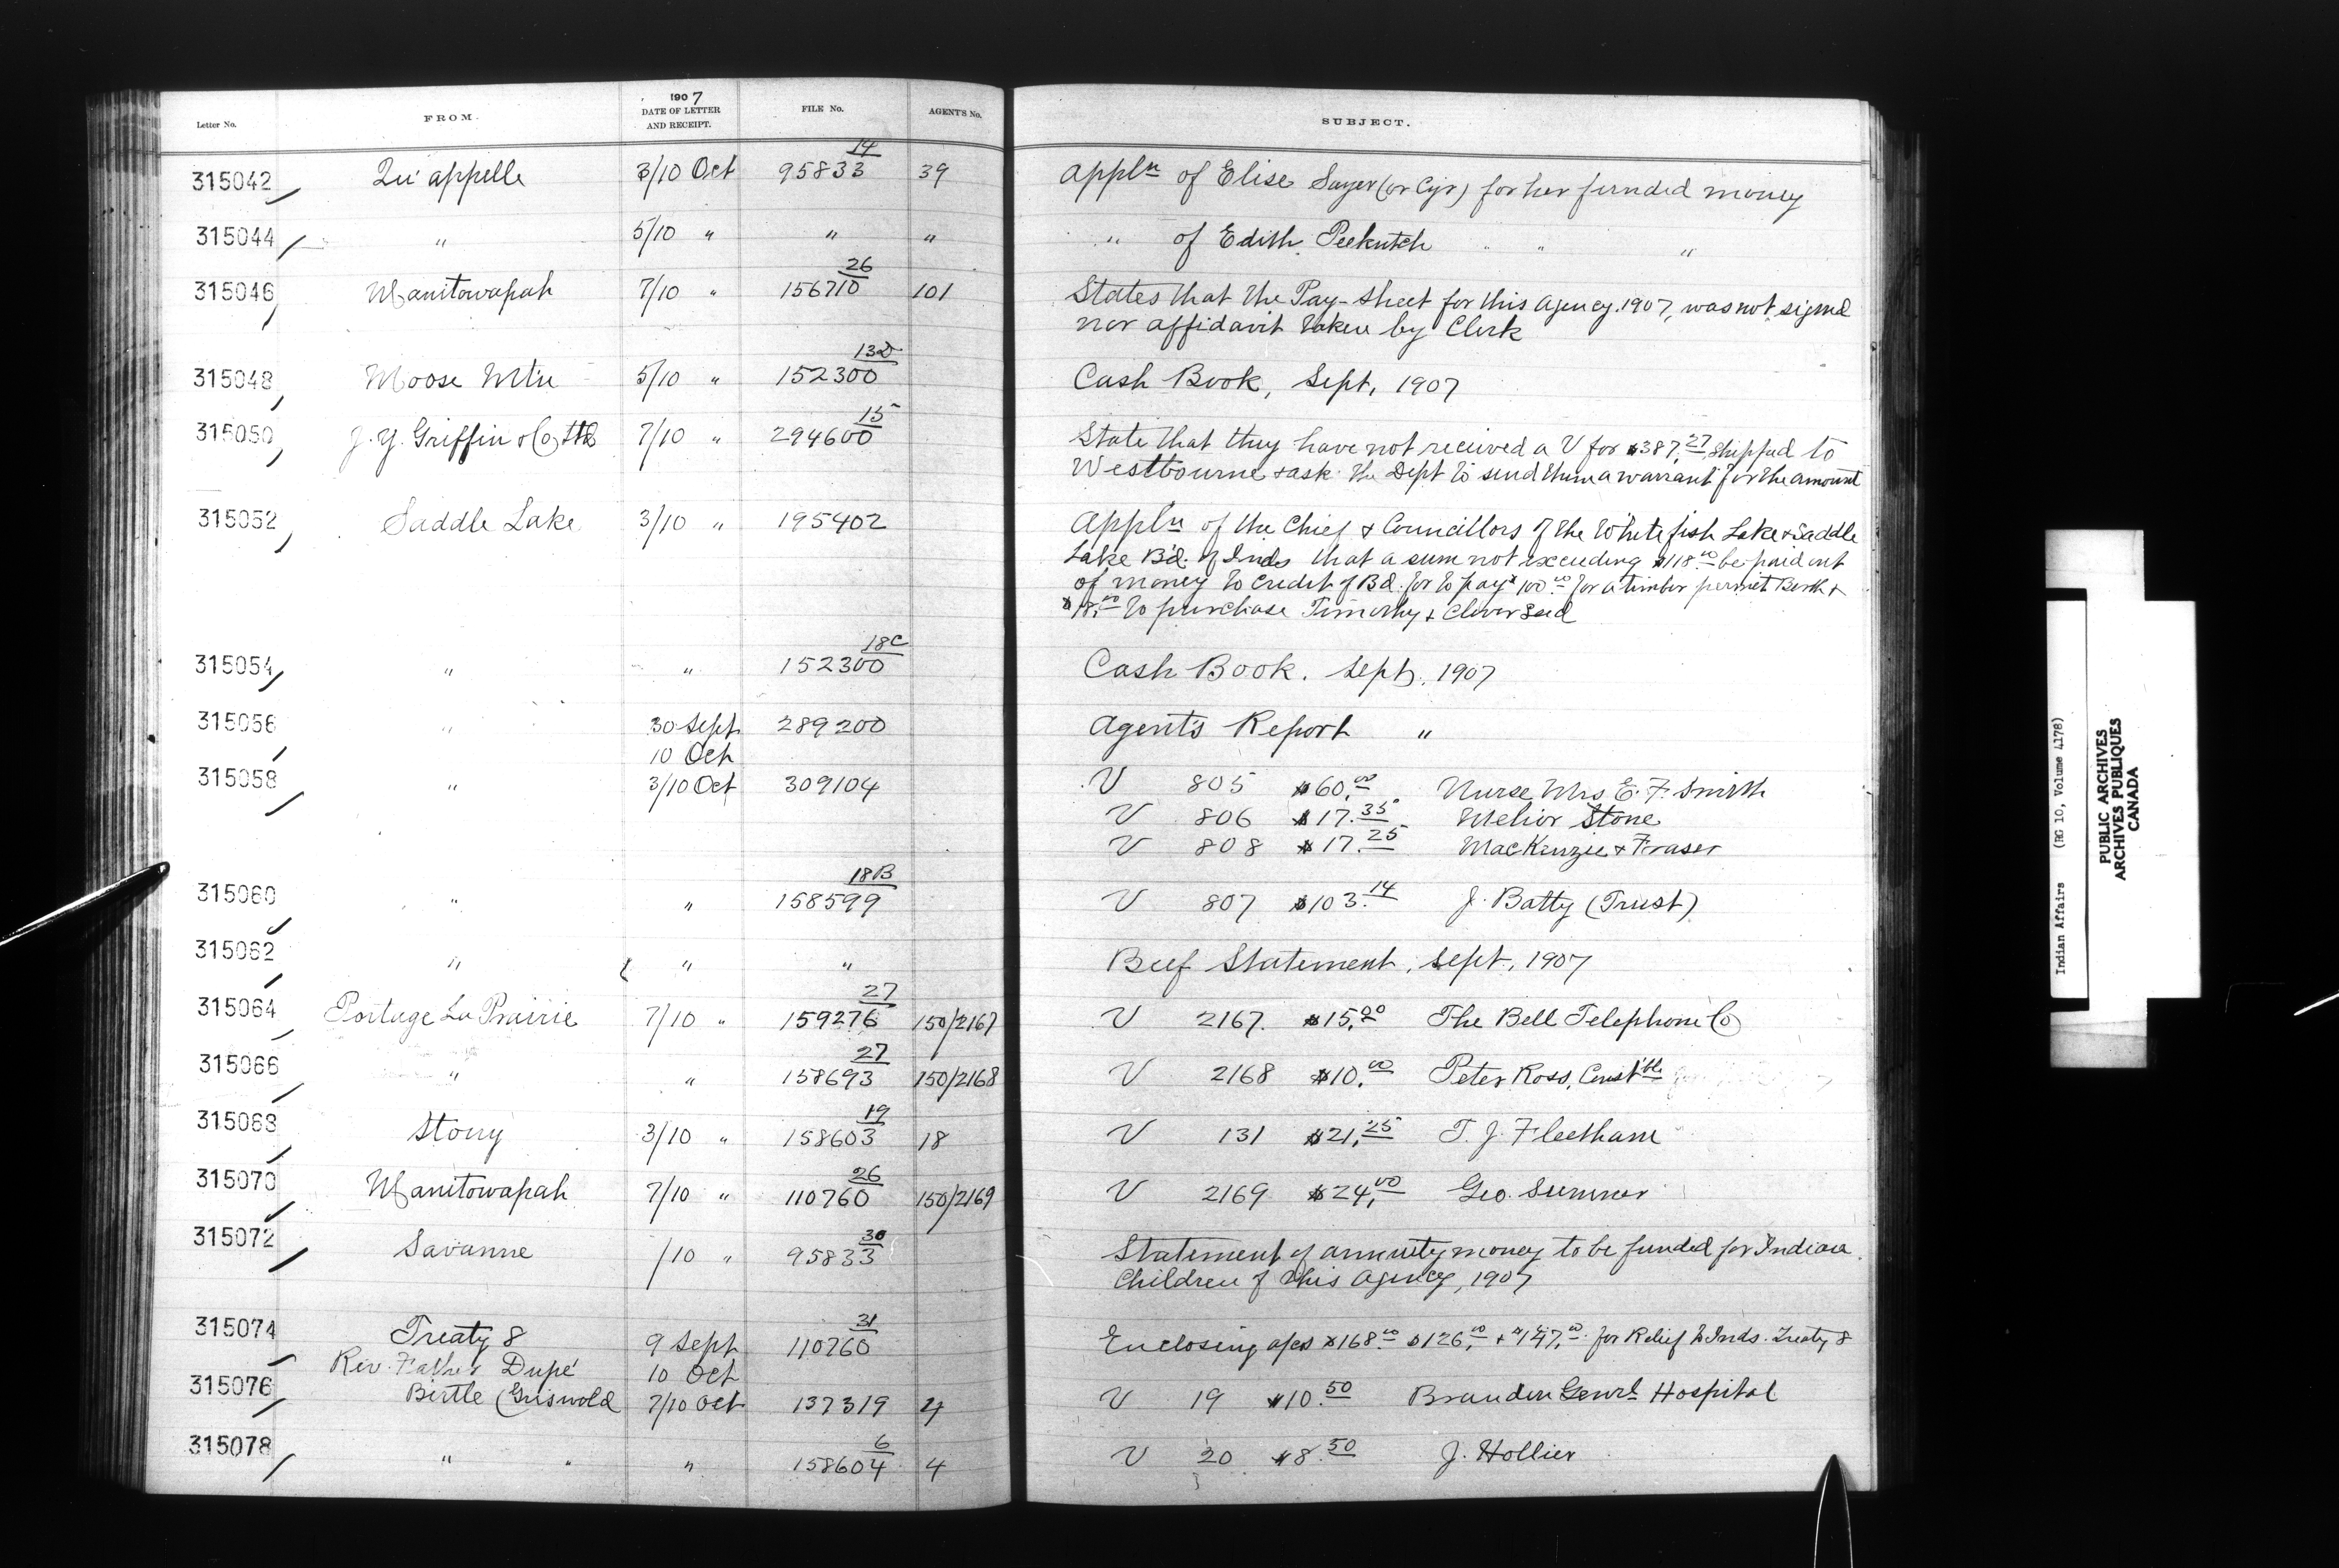 1907
Letter No. FROM. DATE OF LETTER AND RECEIPT. FILE No. AGENT'S No. SUBJECT.
315042 Qu'appelle 3/10 Oct 95833 14 39 Appln of Elise Sayer (or Cyr) for her funded money
315044 " 5/10 " " " " of Edith Peekutch " " "
315046 Manitowapah 7/10 " 156710 26 101 States that the Pay-sheet for this Agency 1907, was not signed
nor affidavit taken by Clerk
315048 Moose Mtn 5/10 " 152300 13D Cash Book, Sept, 1907
315050 J. Y. Griffin & Co Ltd 7/10 " 294600 15 State that they have not received a V for $387.27 shipped to
Westbourne & ask the Dept to send them a warrant for the amount
315052 Saddle Lake 3/10 " 195402 Appln of the Chief & Councillors of the Whitefish Lake & Saddle
Lake B'd. of Inds that a sum not exceeding $118.00 be paid out
of money to credit of Bd. for to pay $100.00 for a timber permit Berth &
$18.00 to purchase Timothy & Clover Seed
315054 " " 152300 18C Cash Book. Sept, 1907
315056 " 30 Sept 289200 Agent's Report "
10 Oct
315058 " 3/10 Oct 309104 V 805 $60.00 Nurse Mrs E. F. Smith
V 806 $17.35 Melior Stone
V 808 $17.25 MacKenzie & Fraser
315060 " " 158599 18B V 807 $103.14 J. Batty (Trust)
315062 " " " Beef Statement, Sept, 1907
315064 Portage La Prairie 7/10 " 159276 27 150/2167 V 2167. $15.20 The Bell Telephone Co
315066 " " 158693 27 150/2168 V 2168 $10.00 Peter Ross, Const'ble
315068 Stony 3/10 " 158603 19 18 V 131 $21.25 T. J. Fleetham
315070 Manitowapah 7/10 " 110760 26 150/2169 V 2169 $24.00 Geo. Sumner
315072 Savanne /10 " 95833 30 Statement of annuity money to be funded for Indian
Children of this Agency, 1907
315074 Treaty 8 9 Sept 110760 31 Enclosing a/cs $168.00 $126.00 & $147.00 for Relief to Inds. Treaty 8
Rev. Father Dupé 10 Oct
315076 Birtle (Griswold 7/10 Oct 137319 4 V 19 $10.50 Brandon Genrl Hospital
315078 " " " 158604 6 4 V 20 $8.50 J. Hollier
Indian Affairs (RG 10, Volume 4178)
PUBLIC ARCHIVES
ARCHIVES PUBLIQUES
CANADA